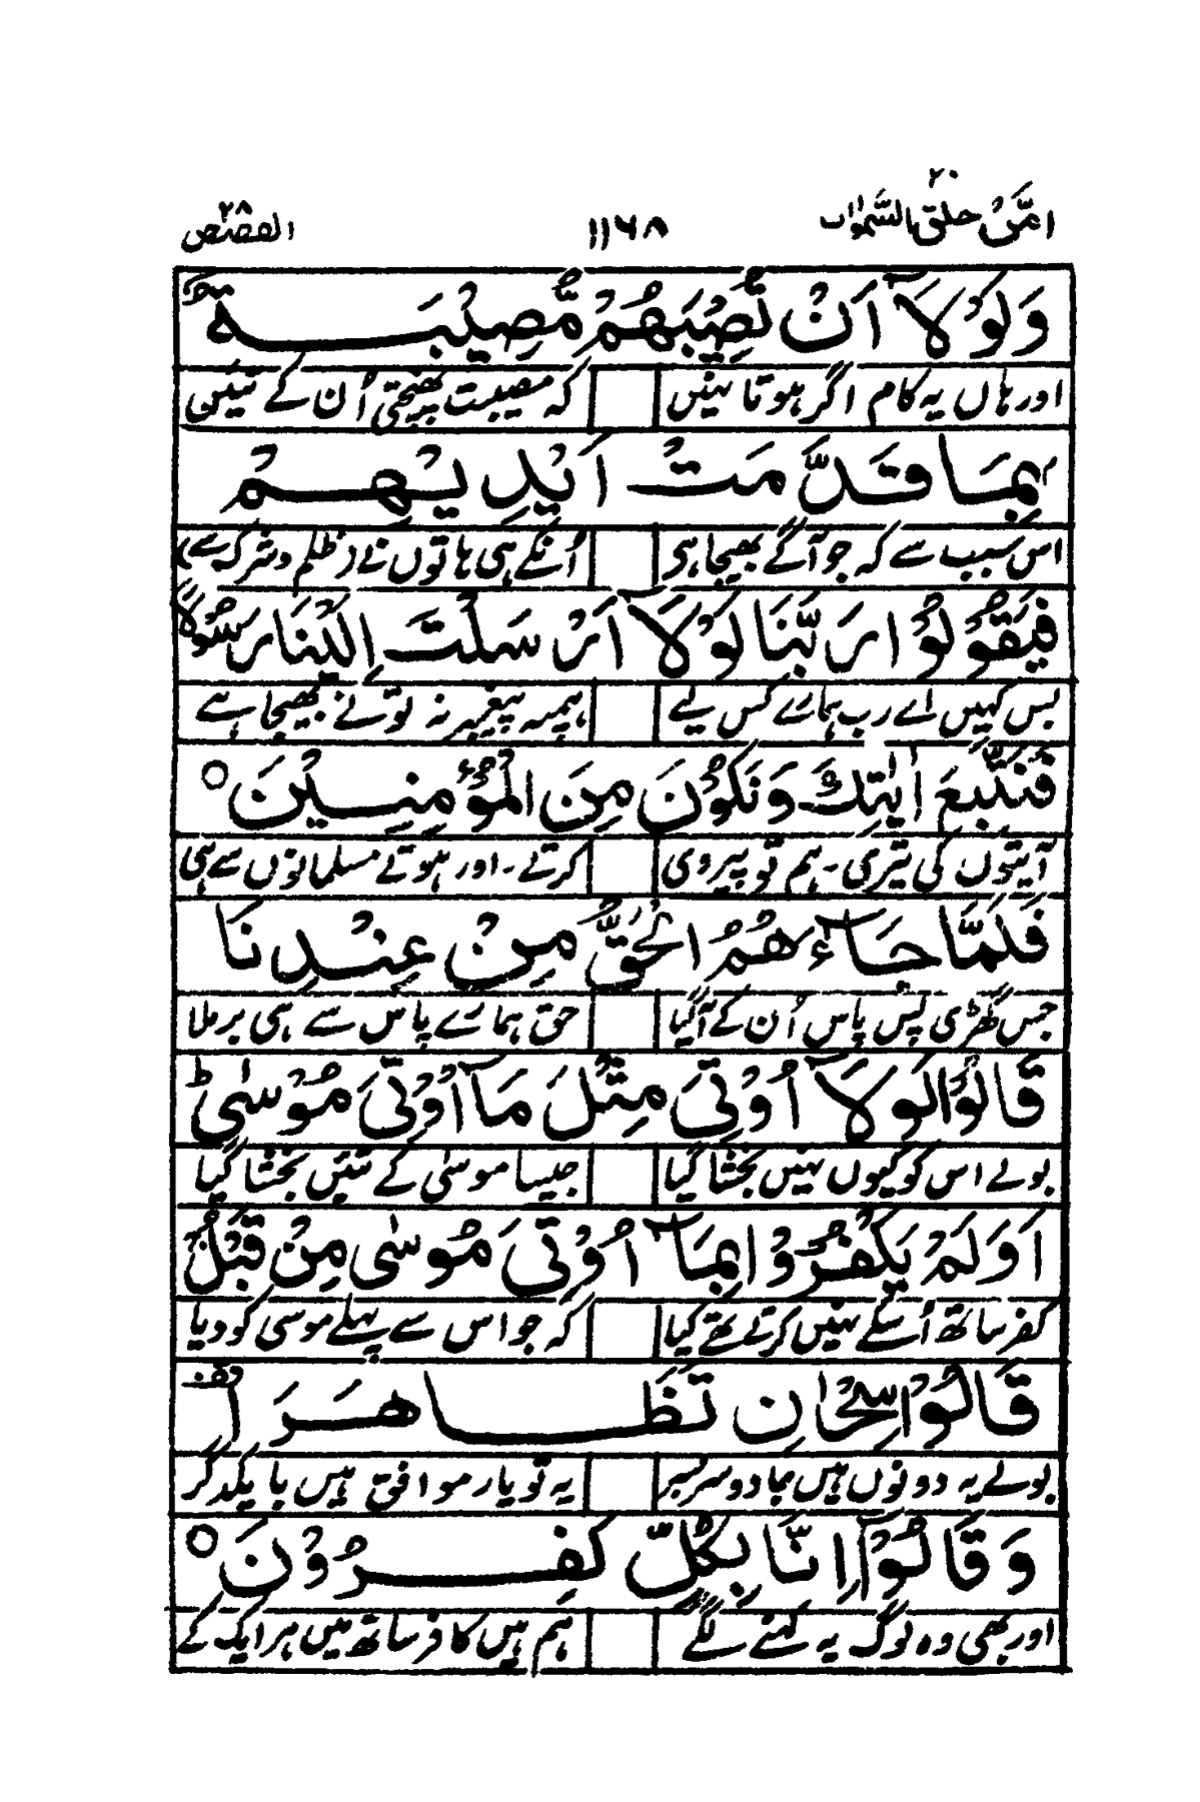 امّن خلق السّمٰوات ۲۰ ۱۱۶۸ القصص ۲۸
وَلَوْلَآ اَنْ تُصِيْبَهُمْ مُّصِيْبَةٌۢ
اور ہاں یہ کام اگر ہوتا نہیں کہ مصیبت پہنچتی اُن کے تئیں
بِمَا قَدَّمَتْ اَيْدِيْهِمْ
اس سبب سے کہ جو آگے بھیجا ہی اُنکے ہی ہاتوں نے (ظلم و شرک سے)
فَيَقُوْلُوْا رَبَّنَا لَوْلَآ اَرْسَلْتَ اِلَيْنَا رَسُوْلًا
بس کہیں اے رب ہمارے کس لیے ہمپہ پیغمبر نہ تو نے بھیجا ہے
فَنَتَّبِعَ اٰيٰتِكَ وَنَكُوْنَ مِنَ الْمُؤْمِنِيْنَ ○
آیتوں کی تیری ۔ ہم تو پیروی کرتے ۔ اور ہوتے مسلمانوں سے ہی
فَلَمَّا جَآءَهُمُ الْحَقُّ مِنْ عِنْدِنَا
جس گھڑی پس پاس اُن کے آ گیا حق ہمارے پاس سے ہی برملا
قَالُوْا لَوْلَآ اُوْتِيَ مِثْلَ مَآ اُوْتِيَ مُوْسٰى ط
بولے اس کو کیوں نہیں بخشا گیا جیسا موسیٰ کے تئیں بخشا گیا
اَوَلَمْ يَكْفُرُوْا بِمَآ اُوْتِيَ مُوْسٰى مِنْ قَبْلُ ج
کفر ساتھ اُسکے نہیں کرتے تھے کیا کہ جو اس سے پہلے موسی کو دیا
قَالُوْا سِحْرٰانِ تَظَاهَرَا قف
بولے یہ دونوں ہیں جادو سربسر یہ تو یار موافق ہیں با یکدگر
وَقَالُوْٓا اِنَّا بِكُلٍّ كٰفِرُوْنَ ○
اور بھی وہ لوگ یہ کہنے لگے ہم ہیں کافر ساتھ میں ہر ایک کے